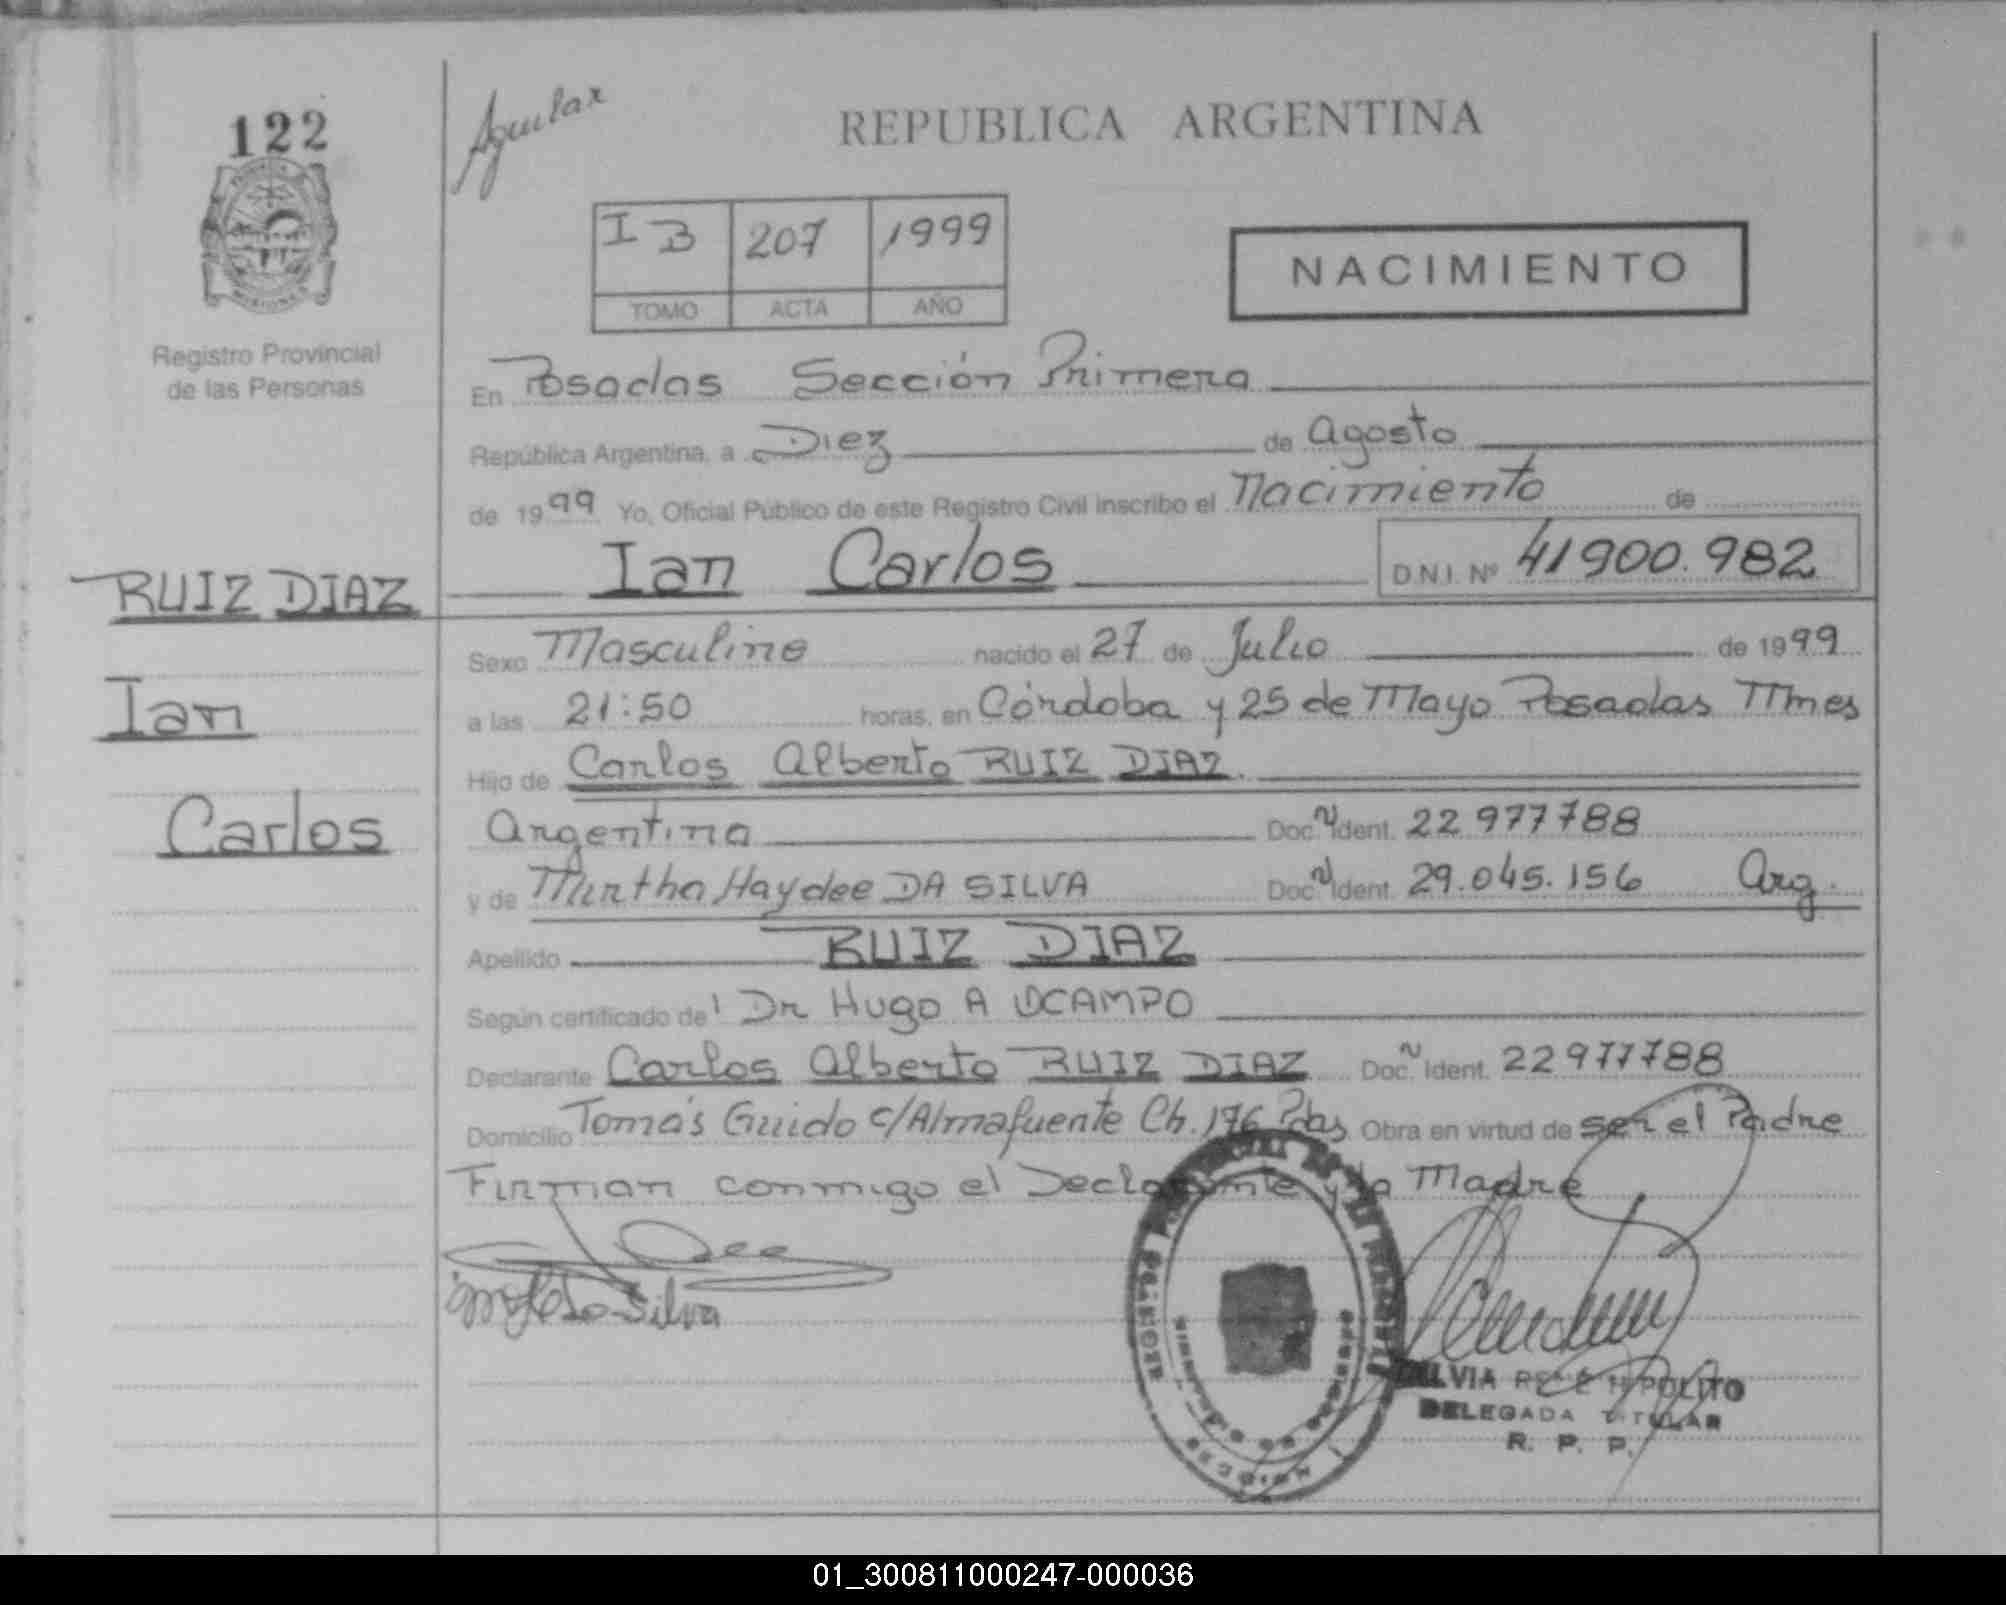 122
Aguilar
REPUBLICA ARGENTINA
I B 207 1999
TOMO ACTA AÑO
NACIMIENTO
Registro Provincial
de las Personas
En Posadas Sección Primera
República Argentina, a Diez de Agosto
de 1999 Yo, Oficial Público de este Registro Civil inscribo el Nacimiento de
Ian Carlos D.N.I. Nº 41900.982
RUIZ DIAZ
Ian
Carlos
Sexo Masculino nacido el 27 de Julio de 1999
a las 21:50 horas, en Córdoba y 25 de Mayo Posadas Mnes
Hijo de Carlos Alberto RUIZ DIAZ.
Argentina Doc. N Ident. 22 977788
y de Mirtha Haydee DA SILVA Doc. N Ident. 29.045.156 Arg.
Apellido RUIZ DIAZ
Según certificado del Dr Hugo A OCAMPO
Declarante Carlos Alberto RUIZ DIAZ Doc. N Ident. 22 977788
Domicilio Tomás Guido c/Almafuente Ch. 176 Pdas Obra en virtud de ser el Padre
Firman conmigo el Declarante y la Madre
Silva
SILVIA RENÉ HIPOLITO
DELEGADA TITULAR
R. P. P.
01_300811000247-000036